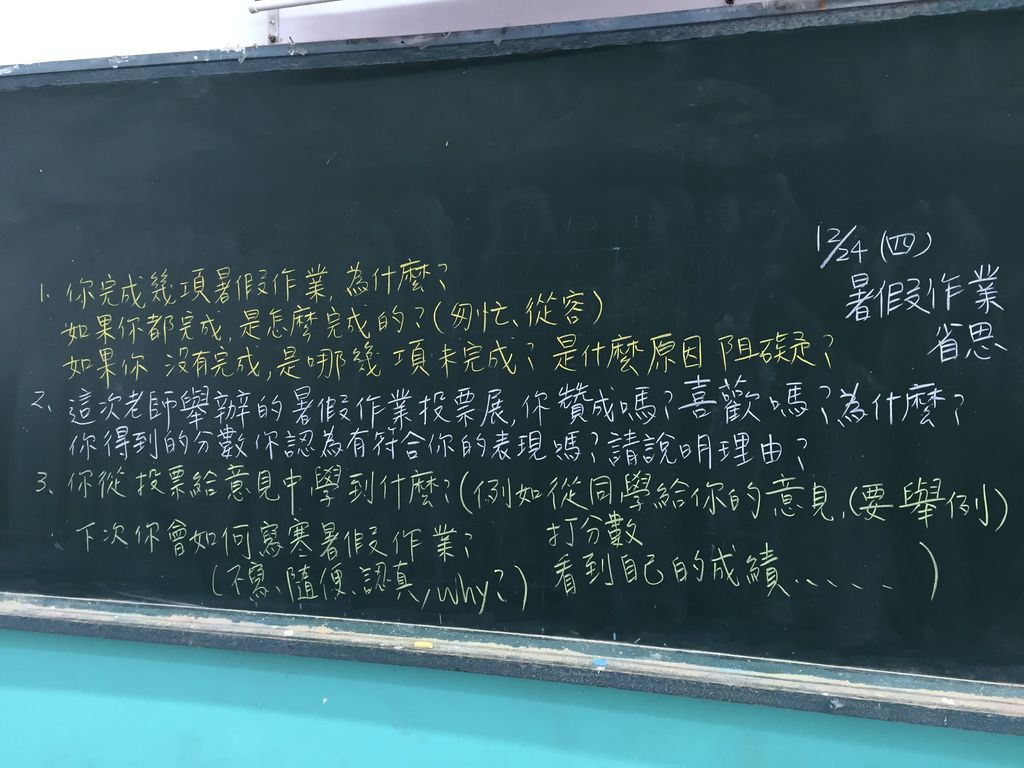 12/24 (四)
暑假作業
省思
1. 你完成幾項暑假作業,為什麼?
如果你都完成,是怎麼完成的?(匆忙、從容)
如果你 沒有完成,是哪幾項未完成?是什麼原因阻礙?
2. 這次老師舉辦的暑假作業投票展,你贊成嗎?喜歡嗎?為什麼?
你得到的分數你認為有符合你的表現嗎?請說明理由?
3. 你從投票給意見中學到什麼?(例如從同學給你的意見,(要舉例)
打分數
看到自己的成績......)
下次你會如何寫寒暑假作業?
(不寫、隨便、認真,why?)